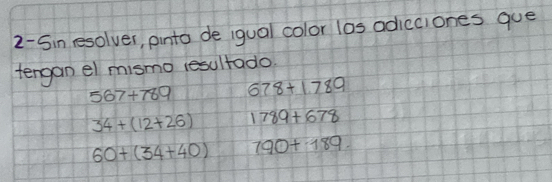 2-Sin resolver, pinta de igual color las adicciones que
tengan el mismo resultado.
567+789 678+1789
34+(12+26) 1789+678
60+(34+40) 790+189.